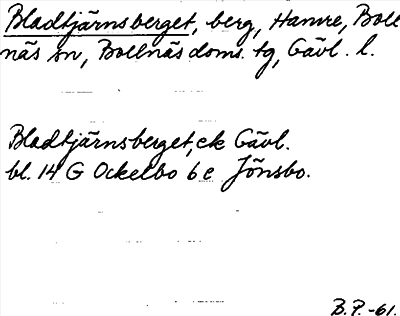 Bladtjärnsberget, berg, Hamre, Boll
näs sn, Bollnäs doms. tg, Gävl. l.
Bladtjärnsberget, ek Gävl.
bl. 14 G Ockelbo 6 e Jönsbo.
B.P. -61.